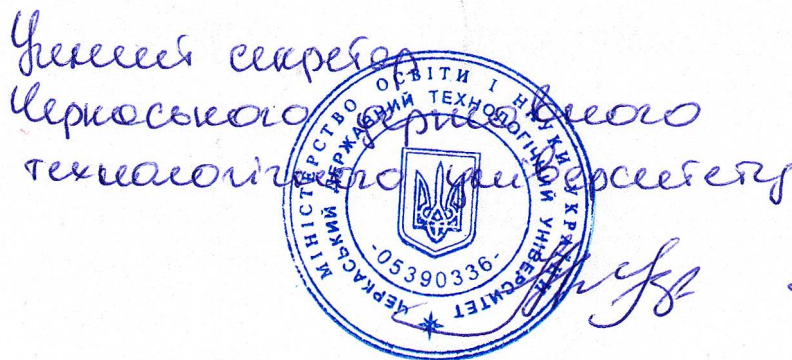 Учений секретар
Черкаського державного
технологічного університету
МІНІСТЕРСТВО ОСВІТИ І НАУКИ УКРАЇНИ
ЧЕРКАСЬКИЙ ДЕРЖАВНИЙ ТЕХНОЛОГІЧНИЙ УНІВЕРСИТЕТ
-05390336-